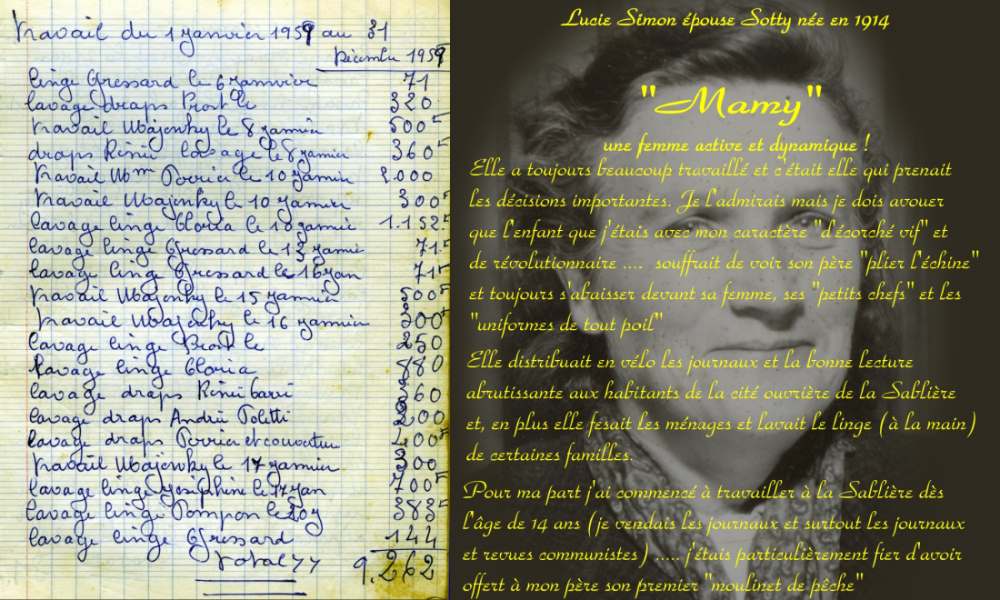 Travail du 1 janvier 1959 au 31
Décembre 1959
linge Gressard le 6 janvier 71
lavage draps Prost le 320
travail le 8 janvier 500
draps Rémi lavage le 8 janvier 360
travail Mme Perrier le 10 janvier 2000
travail le 10 janvier 300
lavage linge Gloria le 10 janvier 1.152
lavage linge Gressard le 13 janvier 71
lavage linge Gressard le 16 jan 71
travail le 15 janvier 500
travail le 16 janvier 300
lavage linge Prost le 250
lavage linge Gloria 880
lavage draps Rémi 360
lavage draps André Poletti 200
lavage draps Perrier et couverture 400
travail le 17 janvier 300
lavage linge Joséphine le 17 jan 700
lavage linge Pompon le 383
lavage linge Gressard 144
Total 9.262
Lucie Simon épouse Sotty née en 1914
"Mamy"
une femme active et dynamique !
Elle a toujours beaucoup travaillé et c'était elle qui prenait
les décisions importantes. Je l'admirais mais je dois avouer
que l'enfant que j'étais avec mon caractère "d'écorché vif" et
de révolutionnaire .... souffrait de voir son père "plier l'échine"
et toujours s'abaisser devant sa femme, ses "petits chefs" et les
"uniformes de tout poil"
Elle distribuait en vélo les journaux et la bonne lecture
abrutissante aux habitants de la cité ouvrière de la Sablière
et, en plus elle fesait les ménages et lavait le linge (à la main)
de certaines familles.
Pour ma part j'ai commencé à travailler à la Sablière dès
l'âge de 14 ans (je vendais les journaux et surtout les journaux
et revues communistes) ..... j'étais particulièrement fier d'avoir
offert à mon père son premier "moulinet de pêche"